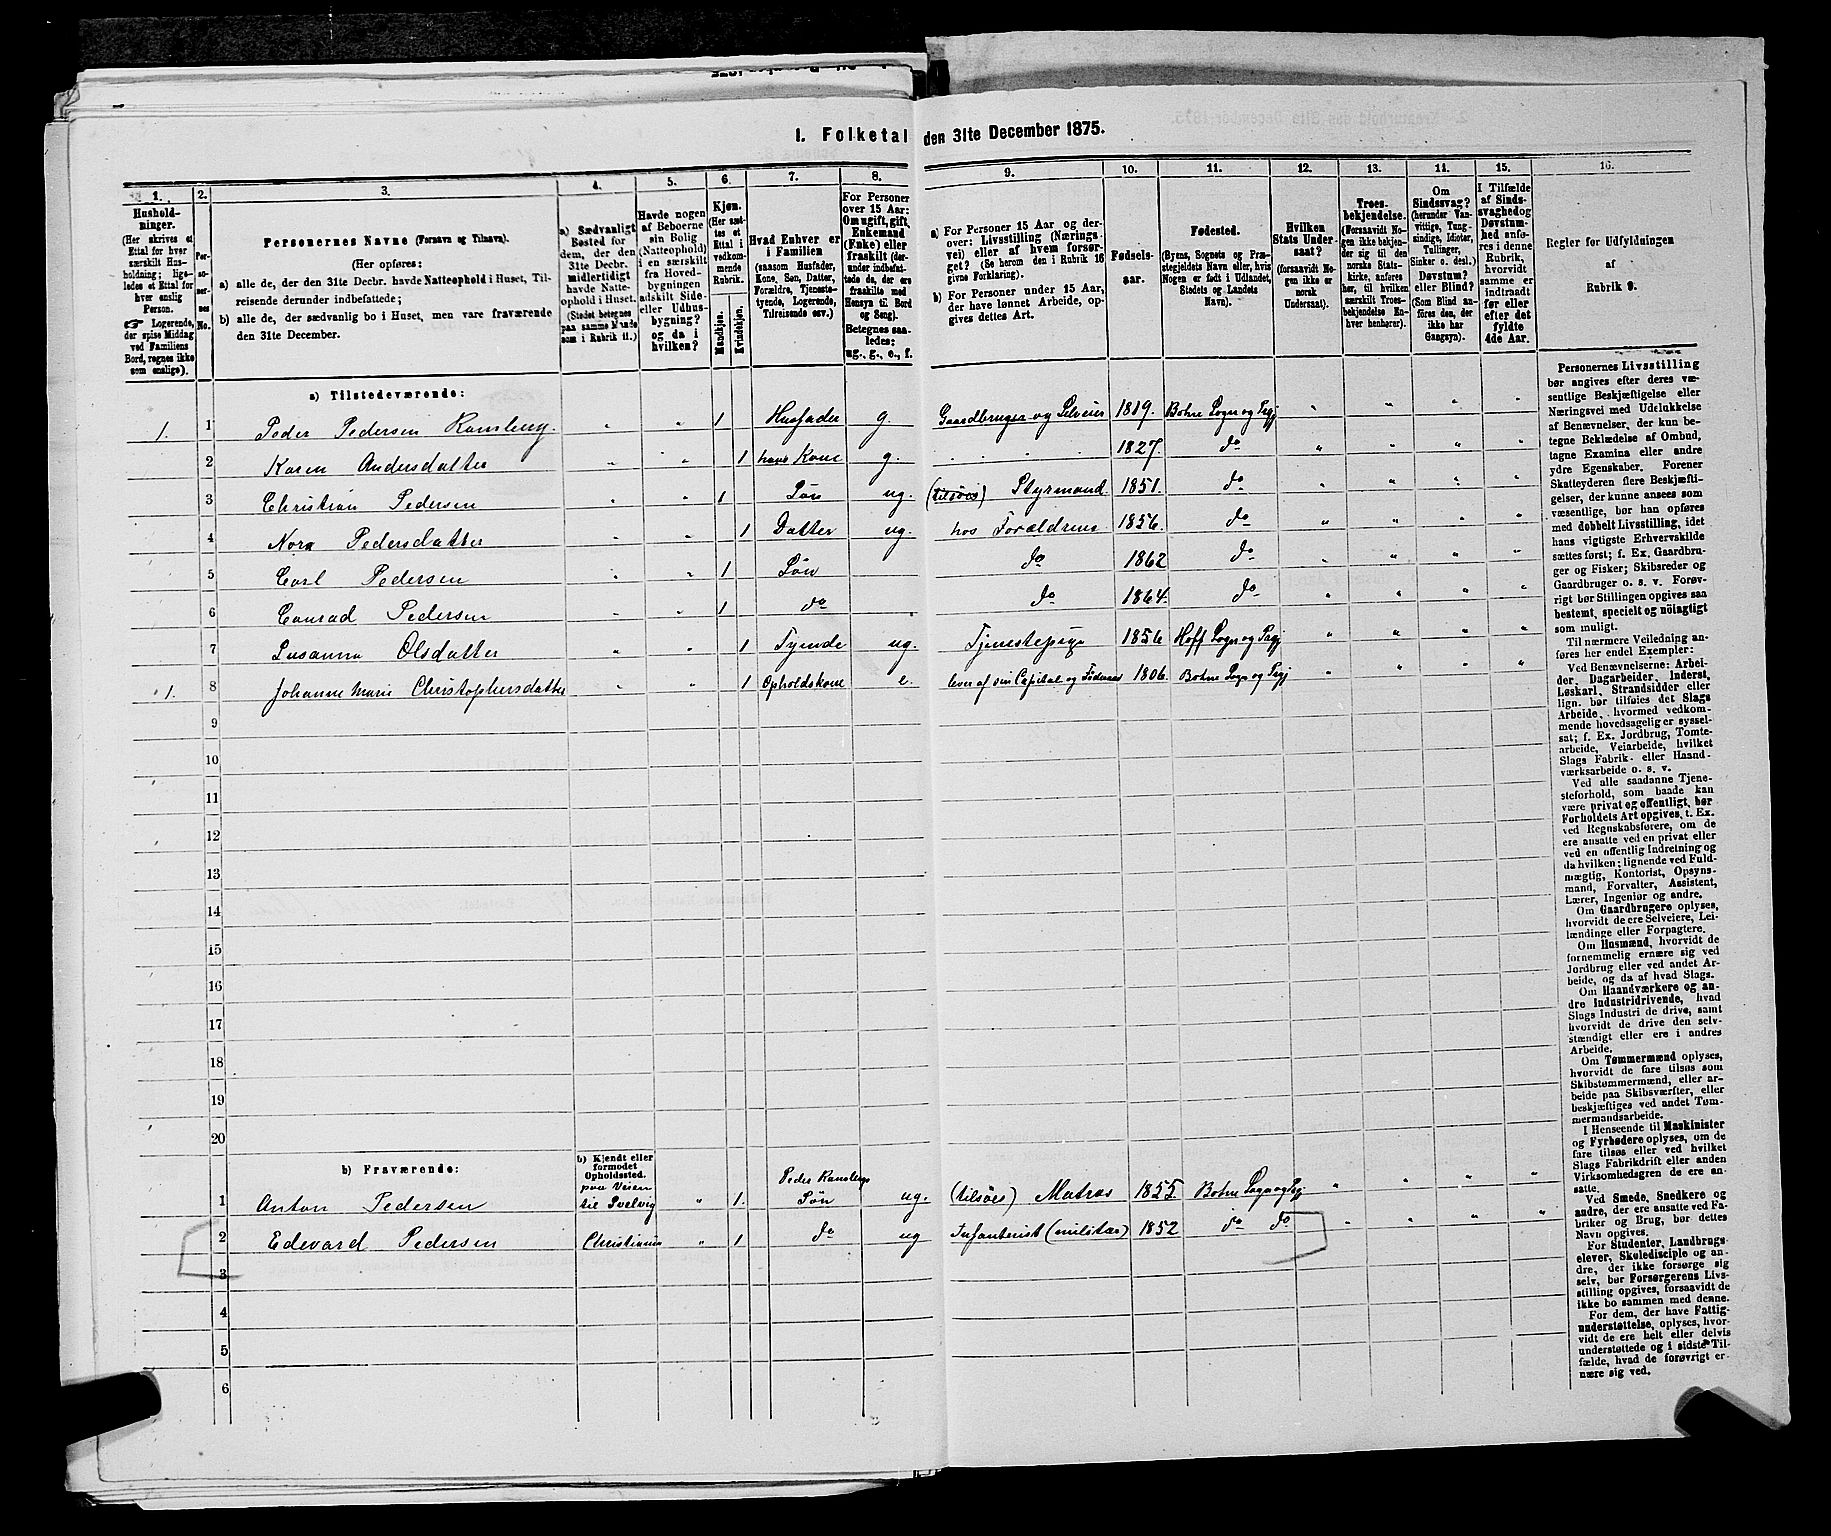 1. Folketal den 31te December 1875.
1. 2. 3. 4. 5. 6. 7. 8. 9. 10. 11. 12. 13. 14. 15. 16.
Husholdninger.
(Her skrives et
Ettal for hver
særskilt Husholdning;
ligeledes et Ettal for
hver enslig
Person.
☞ Logerende,
der spise Middag
ved Familiens
Bord, regnes ikke
som enslige).
Personernes No.
Personernes Navne (Fornavn og Tilnavn).
(Her opføres:
a) alle de, der den 31te Decbr. havde Natteophold i Huset, Tilreisende derunder indbefattede;
b) alle de, der sædvanlig bo i Huset, men vare fraværende
den 31te December.
a) Sædvanligt
Bosted for
dem, der den
31te Decbr.
midlertidigt
havde Natteophold i Huset.
(Stedet betegnes
paa samme Maade
som i Rubrik 11.)
Havde nogen
af Beboerne
sin Bolig
(Natteophold)
i en særskilt
fra Hovedbygningen
adskilt Side-
eller Udhusbygning?
og da i
hvilken?
Kjøn.
(Her sættes et
Ettal i
vedkommende
Rubrik.
Mandkjøn. Kvindekjøn.
Hvad Enhver er
i Familien
(saasom Husfader,
Kone, Søn, Datter,
Forældre, Tjenestetyende, Logerende,
Tilreisende osv.)
For Personer
over 15 Aar:
Om ugift, gift,
Enkemand
(Enke) eller
fraskilt (derunder indbefattede de, der ere
fraskilte med
Hensyn til Bord
og Seng).
Betegnes saaledes:
ug., g., e., f.
a) For Personer 15 Aar og derover: Livsstilling (Næringsvei) eller af hvem forsørget? (Se herom den i Rubrik 16
givne Forklaring).
b) For Personer under 15 Aar,
der have lønnet Arbeide, opgives dettes Art.
Fødselsaar.
Fødested.
(Byens, Sognets og Præstegjeldets Navn eller, hvis
Nogen er født i Udlandet,
Stedets og Landets
Navn).
Hvilken
Stats Undersaat?
(forsaavidt Nogen ikke er
norsk
Undersaat).
Troesbekjendelse.
(Forsaavidt Nogen ikke bekjender sig til den
norske Statskirke, anføres
her, til hvilken
særskilt Troesbekjendelse Enhver henhører).
Om
Sindssvag?
(herunder Vanvittige, Tungsindige, Idioter,
Tullinger,
Sinker o. desl.)
Døvstum?
eller Blind?
(Som Blind anføres den, der
ikke har
Gangsyn).
I Tilfælde
af Sindssvaghed og
Døvstumhed anføres i denne
Rubrik,
hvorvidt
samme er
indtraadt
før eller
efter det
fyldte
4de Aar.
Regler for Udfyldningen
af
Rubrik 9.
a) Tilstedeværende:
1. 1 Peder Pedersen Ramsberg. " " 1 Husfader g. Gaardbruger og Selveier 1819. Bohne Sogn og Pgj " " " "
2 Karen Andersdatter " " 1 hans Kone g. 1827. do " " " "
3 Christian Pedersen " " 1 Søn ug. (tilsøes) Styrmand. 1851. do " " " "
4 Nora Pedersdatter " " 1 Datter ug. hos Forældrene 1856. do " " " "
5 Carl Pedersen " " 1 Søn do 1862 do " " " "
6 Conrad Pedersen " " 1 do do 1864. do " " " "
7 Susanna Olsdatter " " 1 Tyende ug. Tjenestepige 1856 Hoff Sogn og Pgj " " " "
1. 8 Johanne Marie Christophersdatter " " 1 Opholdskone e. lever af sin Capital og Føderaad 1806. Bohne Sogn og Pgj " " " "
9
10
11
12
13
14
15
16
17
18
19
20
b) Fraværende:
b) Kjendt eller
formodet
Opholdssted.
1 Anton Pedersen paa Veien til Svelvig " 1. Peder Ramsbergs Søn ug. (tilsøes) Matros 1855. Bohne Sogn og Pgj " " " "
2 Edevard Pedersen Christiania " 1 do ug Infanterist (militær) 1852 do do " " " "
3
4
5
6
Personernes Livsstilling
bør angives efter deres væsentlige Beskjæftigelse eller
Næringsvei med Udelukkelse
af Benævnelser, der kun betegne Beklædelse af Ombud,
tagne Examina eller andre
ydre Egenskaber. Forener
Skatteyderen flere Beskjæftigelser, der kunne ansees som
væsentlige, bør han opføres
med dobbelt Livsstilling, idet
hans vigtigste Erhvervskilde
sættes først; f. Ex. Gaardbruger og Fisker; Skibsreder og
Gaardbruger o. s. v. Forøvrigt bør Stillingen opgives saa
bestemt, specielt og nöiagtigt
som muligt.
Til nærmere Veiledning anføres her endel Exempler:
Ved Benævnelserne: Arbeider, Dagarbeider, Inderst,
Løskarl, Strandsidder eller
lign. bør tilføies det Slags
Arbeide, hvormed vedkommende hovedsagelig er sysselsat; f. Ex. Jordbrug, Tomtearbeide, Veiarbeide, hvilket
Slags Fabrik- eller Haandværksarbeide o. s. v.
Ved alle saadanne Tjenesteforhold, som baade kan
være privat og offentligt, bør
Forholdets Art opgives, t. Ex.
ved Regnskabsførere, om de
ere ansatte ved en privat eller
ved en offentlig Indretning og
da hvilken; lignende ved Fuldmægtig, Kontorist, Opsynsmand, Forvalter, Assistent,
Lærer, Ingeniør og andre.
Om Gaardbrugere oplyses,
hvorvidt de ere Selveiere, Leilændinge eller Forpagtere.
Om Husmænd, hvorvidt de
fornemmelig ernære sig ved
Jordbrug eller ved andet Arbeide, og da af hvad Slags.
Om Haandværkere og andre Industridrivende, hvad
Slags Industri de drive, samt
hvorvidt de drive den selvstændigt eller ere i andres
Arbeide.
Om Tømmermænd oplyses,
hvorvidt de fare tilsøs som
Skibstømmermænd, eller arbeide paa Skibsværfter, eller
beskjæftiges ved andet Tømmermandsarbeide.
I Henseende til Maskinister
og Fyrbødere oplyses, om de
fare tilsøs eller ved hvilket
Slags Fabrikdrift eller anden
Virksomhedsgren de ere ansatte.
Ved Smede, Snedkere og
andre, der ere ansatte ved Fabriker og Brug, bør dettes
Navn opgives.
For Studenter, Landbrugselever, Skoledisciple og andre, der ikke forsørge sig
selv, bør Forsørgerens Livsstilling opgives, forsaavidt de
ikke bo sammen med denne.
For dem, der have Fattigunderstøttelse, oplyses, hvorvidt de ere helt eller delvis
understøttede og i sidste Tilfælde, hvad de forøvrigt ernære sig ved.